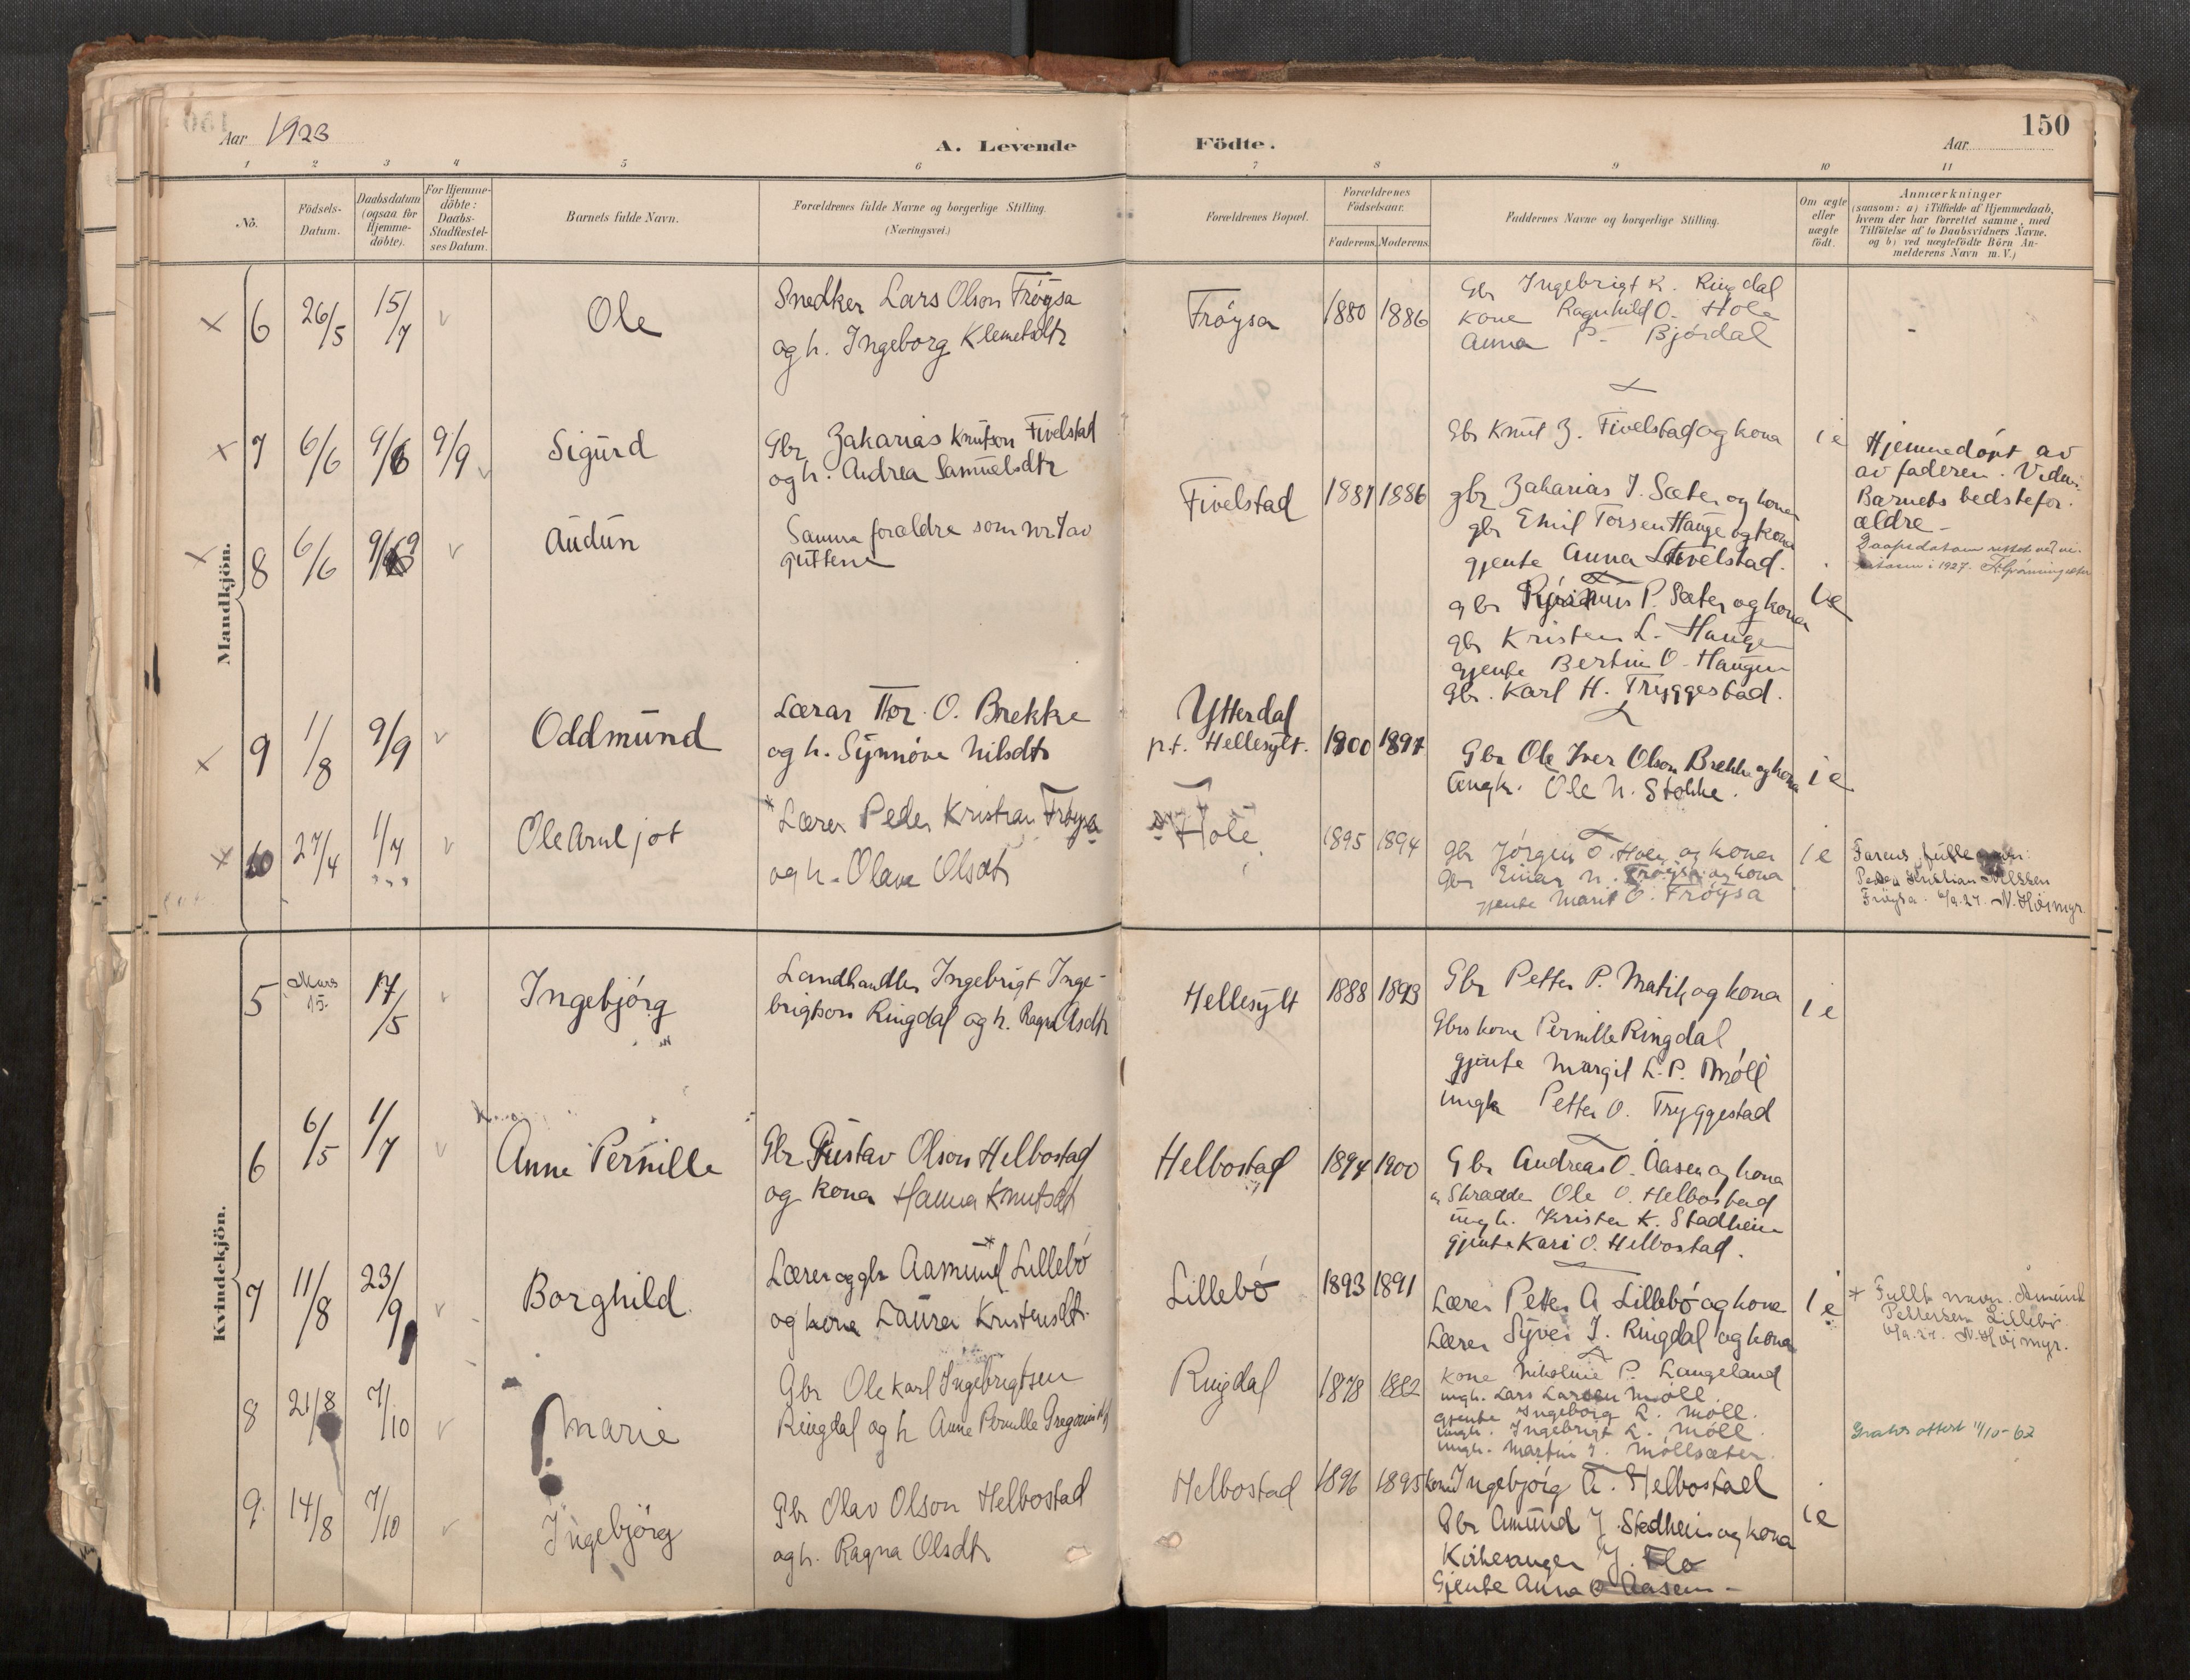 150
Aar 1923
A. Levende Födte.
Aar
1 2 3 4 5 6 7 8 9 10 11
No.
Födsels-
Datum.
Daabsdatum
(ogsaa for
Hjemme-
döbte).
For Hjemme-
döbte:
Daabs-
Stadfæstel-
ses Datum.
Barnets fulde Navn.
Forældrenes fulde Navne og borgerlige Stilling.
(Næringsvei.)
Forældrenes Bopæl.
Forældrenes
Födselsaar.
Faderens. Moderens.
Faddernes Navne og borgerlige Stilling.
Om ægte
eller
uægte
födt.
Anmærkninger
(saasom: a) i Tilfælde af Hjemmedaab,
hvem der har forrettet samme, med
Tilföielse af to Daabsvidners Navne.
og b) ved uægtefödte Börn An-
melderens Navn m. V.)
Mandkjön.
6 26/5 15/7 Ole
Snedker Lars Olson Fröysa
og h. Ingeborg Klemetsdtr
Fröysa 1880 1886
Gbr Ingebrigt K. Ringdal
Kone Ragnhild O. Hole
Anna P. Björdal
7 6/6 9/6 9/9 Sigurd
Gbr Zakarias Knutson Fivelstad
og h. Andrea Samuelsdtr
Fivelstad 1887 1886
Gbr Knut Z. Fivelstad og kona
gbr Zakarias J. Sæter og kona
gbr Emil Torsen Hauge og kona
gjente Anna Fivelstad.
i e
Hjemmedöpt av
av faderen.
Barnets bedstefor-
ældre
Daapsdatum rettet ved vi-
sitasen i 1927.
8 6/6 9/9 Audun
Samme forældre som nr 7 av
guttene
gbr P. Sæter og kona
gbr Kristen L. Haugen
gjente Bertine O. Haugen
Gbr. Karl H. Tryggestad.
i e
9 1/8 9/9 Oddmund
Lærar Thor O. Brekke
og h. Synnöve Nilsdtr
Ytterdal
p.t. Hellesylt. 1900 1897
Gbr Ole Iver Olson Brekke og kona
Ungk. Ole N. Stokke.
i e
10 27/4 1/7 Ole Arnljot
* Lærer Peder Kristian Fröysa
og h. Olava Olsdtr
Hole 1895 1894
Gbr Jörgen O. Hole og kona
Gbr Einar N. Fröysa og kona
gjente Marit O. Fröysa
i e
Farens fulle navn:
Peder Kristian Nilssen
Fröysa. 6/9.27. N. Höimyr.
Kvindekjön.
5 Mars 15. 17/5 Ingebjörg
Landhandler Ingebrigt Inge-
brigtson Ringdal og h. Ragna Asdtr
Hellesylt 1888 1893
Gbr Petter P. Matik og kona
Gbrs kone Pernille Ringdal
gjente Margit L. P. Möll
Ungk Petter O. Tryggestad
i e
6 6/5 1/7 Anne Pernille
Gbr Gustav Olson Helbostad
og kona Hanna Knutsdtr
Helbostad 1894 1900
Gbr Andreas O. Aasen og kona
Skrædder Ole O. Helbostad
ungk. Kristen K. Stadheim
gjente Kari O. Helbostad.
7 11/8 23/9 Borghild
Lærer og gbr Aamund * Lillebö
og kona Laura Kristensdtr.
Lillebö 1893 1891
Lærer Petter A Lillebö og kone
Lærer Syver J. Ringdal og kona
i e
* Fullt navn. Amund
Pettersen Lillebö.
6/9.27. N. Höimyr.
8 21/8 7/10 Marie
Gbr Ole Karl Ingebrigtsen
Ringdal og h Anne Pernille
Ringdal 1878 1882
Kone Nikoline P. Langeland
ungk. Lars Larsen Möll
gjente Ingeborg L. Möll.
ungk. Ingebrigt L. Möll
ungk. Martin J. Möllsæter.
11/10-62
9 14/8 7/10 Ingebjörg
Gbr Olav Olson Helbostad
og h. Ragna Olsdtr
Helbostad 1896 1895
kona Ingebjörg A. Helbostad
Gbr Amund J. Stadheim og kona
Kirkesanger J. Flo
Gjente Anna O Aasen
i e